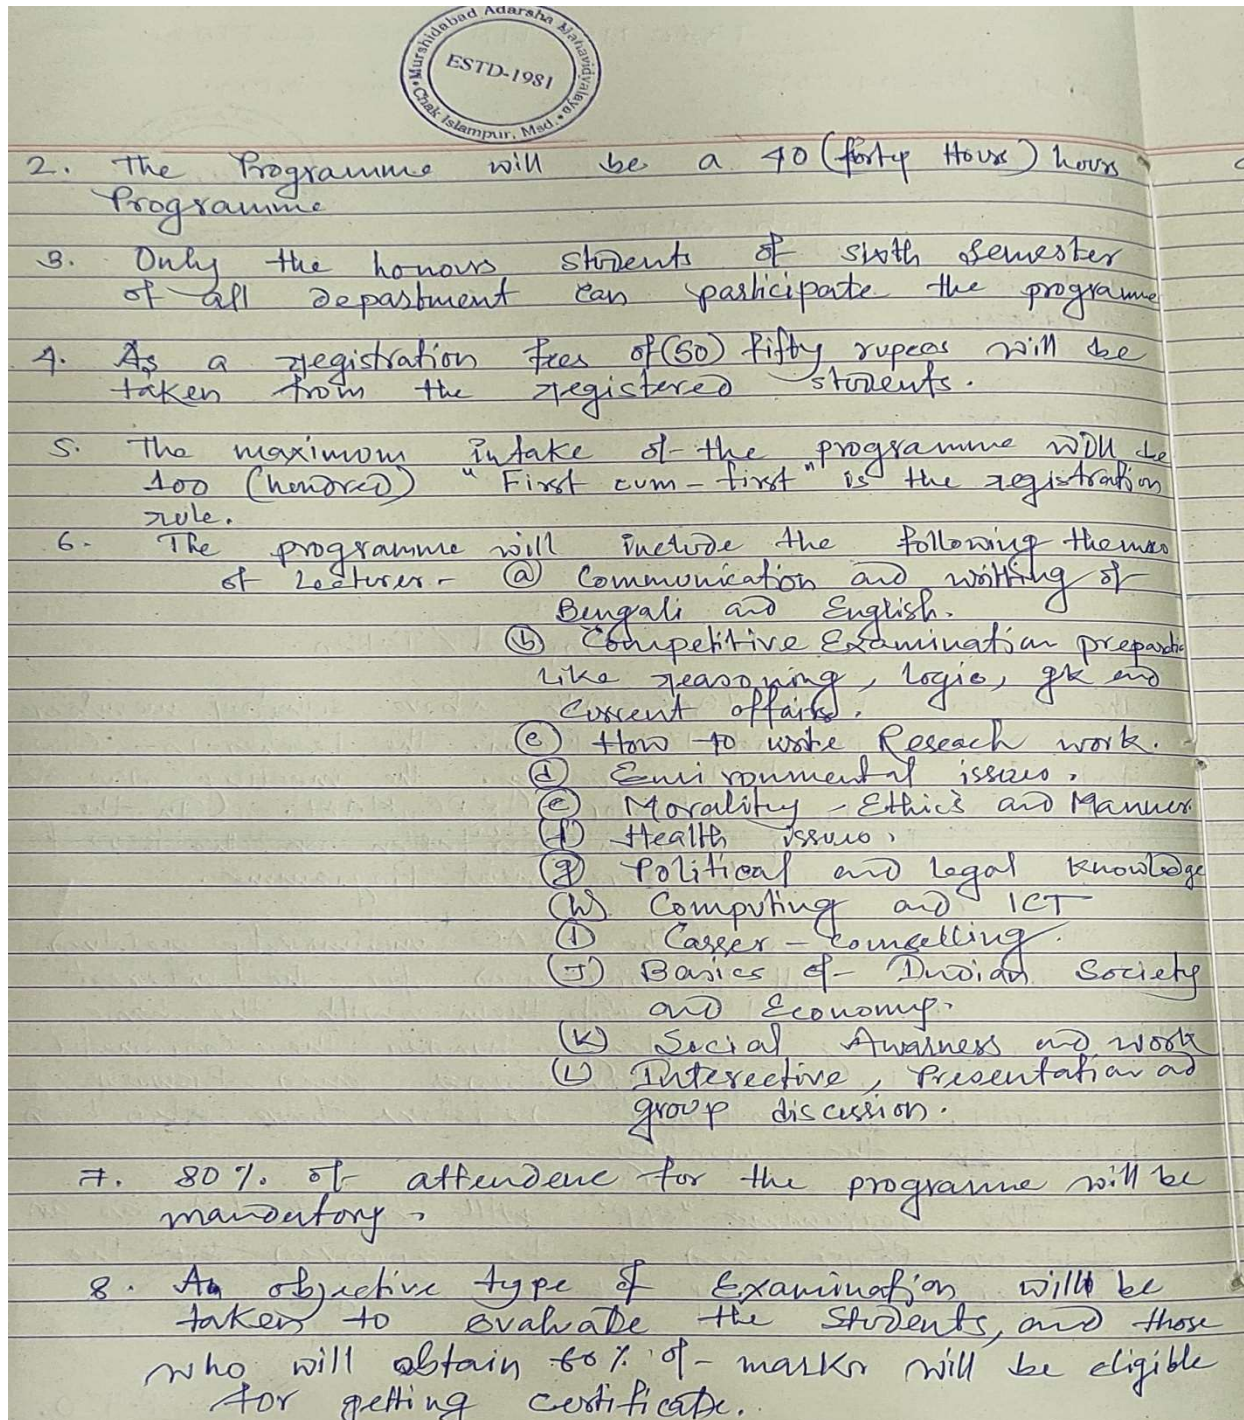 Murshidabad Adarsha Mahavidyalaya
ESTD-1981
Chak Islampur, Msd.
2. The Programme will be a 40 (forty Hours) hours
Programme
3. Only the honours students of sixth semester
of all department can participate the programme
4. As a registration fees of (50) fifty rupees will be
taken from the registered students.
5. The maximum intake of the programme will be
100 (hundred) "First cum-first" is the registration
rule.
6. The programme will include the following themes
of Lectures - (a) Communication and writting of
Bengali and English.
(b) Competitive Examination
like reasoning, logic, gk and
current affairs.
(c) How to write Reseach work.
(d) Environmental issues.
(e) Morality - Ethics and Manner
(f) Health issues.
(g) Political and Legal Knowledge
(h) Computing and ICT
(i) Carrer - Counselling.
(J) Basics of Indian Society
and Economy.
(K) Social Awarness and work
(L) Interective, Presentation ad
group discussion.
7. 80%. of attendence for the programme will be
mandatory.
8. An objective type of Examination will be
taken to evaluate the Students, and those
who will obtain 60%. of marks will be eligible
for getting certificate.